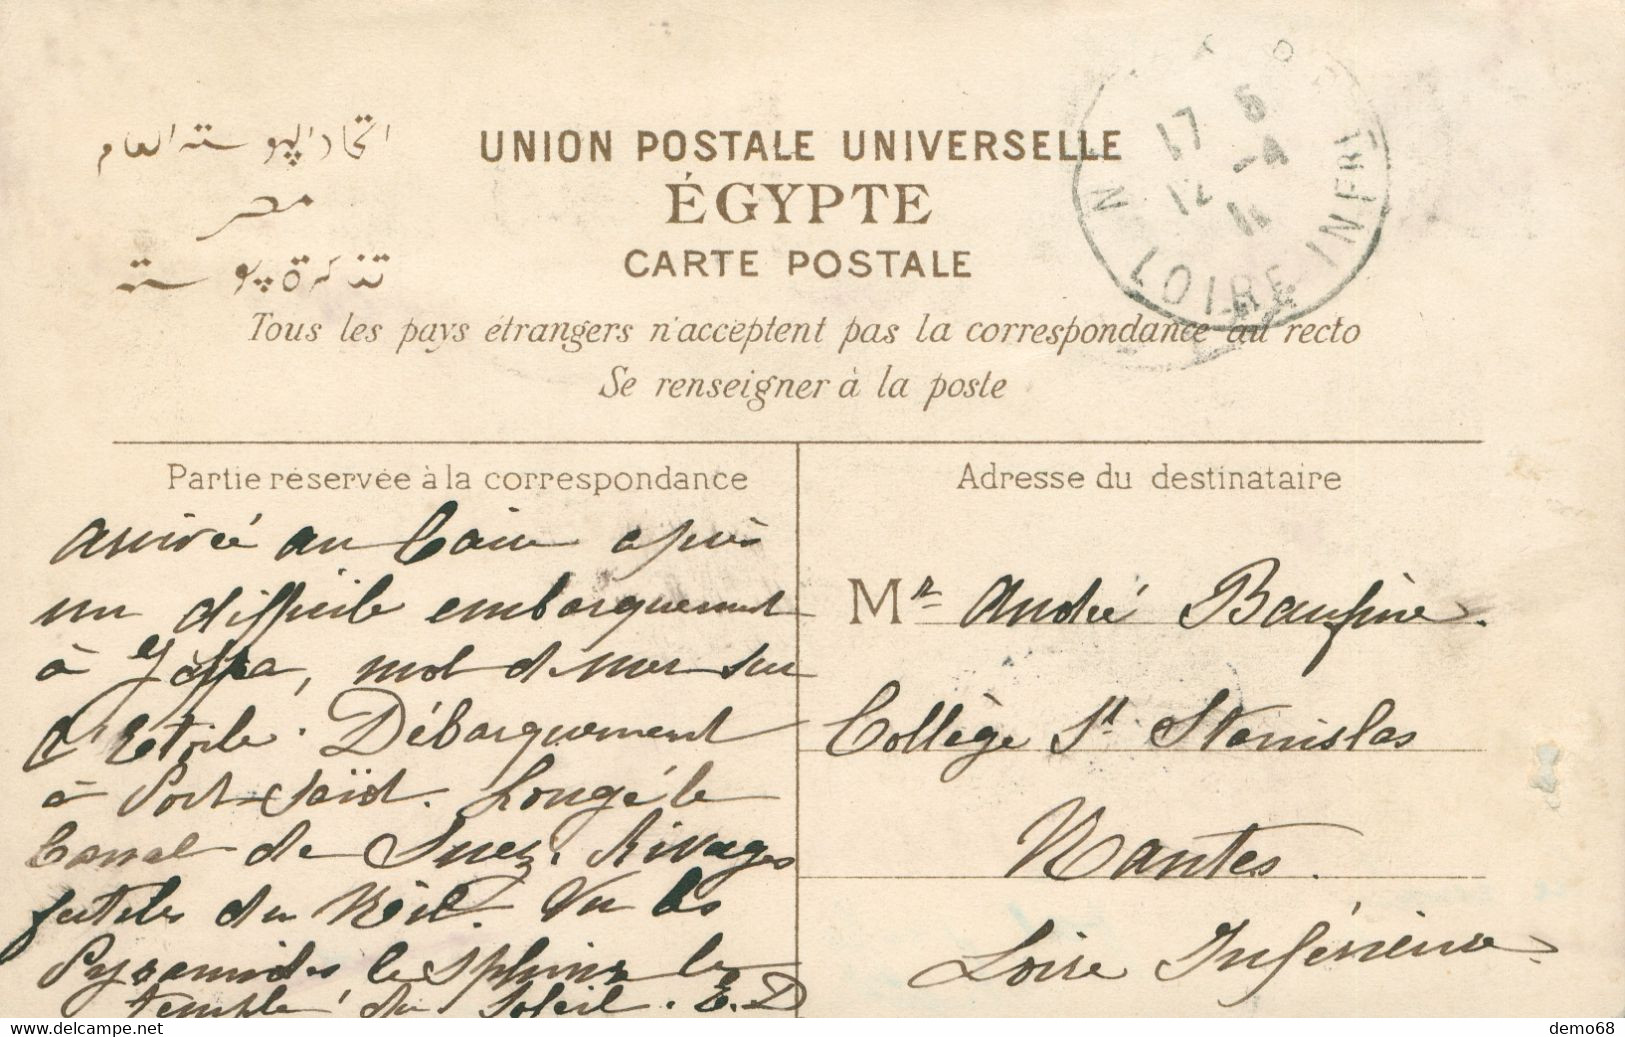 اتحاد البوسته العام
مصر
تذكرة بوسته
UNION POSTALE UNIVERSELLE
ÉGYPTE
CARTE POSTALE
Tous les pays étrangers n'acceptent pas la correspondance au recto
Se renseigner à la poste
17 5
12 -4
LOIRE INFRE
Partie réservée à la correspondance
Arrivée au Caire après
un difficile embarquement
à Jaffa, mol de mer sur
l'Etoile. Débarquement
à Port-Saïd. Longé le
Canal de Suez. Rivages
fertiles du Nil. Vu les
Pyramides le Sphinx le
temple du Soleil. E.D
Adresse du destinataire
Mr André
Collège St Stanislas
Nantes.
Loire Inférieure
www.delcampe.net
demo68